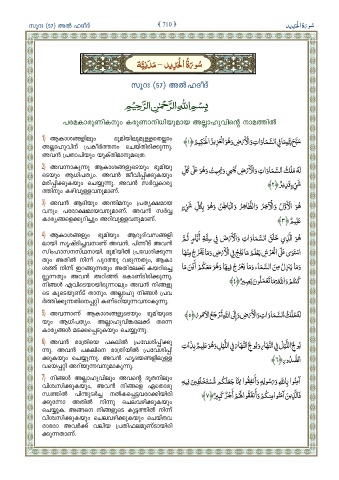 സൂറഃ (57) അൽ ഹദീദ്
﴾ 710 ﴿
سُورَةُ الْحَدِيدِ
سُورَةُ الْحَدِيدِ - مَدَنِيَّة
സൂറഃ (57) അൽ ഹദീദ്
بِسْمِ اللَّهِ الرَّحْمَٰنِ الرَّحِيمِ
പരമകാരുണികനും കരുണാനിധിയുമായ അല്ലാഹുവിന്റെ നാമത്തിൽ
1) ആകാശങ്ങളിലും ഭൂമിയിലുമുള്ളതെല്ലാം
അല്ലാഹുവിന് പ്രകീർത്തനം ചെയ്തിരിക്കുന്നു.
അവൻ പ്രതാപിയും യുക്തിമാനുമത്രെ.
سَبَّحَ لِلَّهِ مَا فِي السَّمَاوَاتِ وَالْأَرْضِ وَهُوَ الْعَزِيزُ الْحَكِيمُ ﴿١﴾
2) അവന്നാകുന്നു ആകാശങ്ങളുടെയും ഭൂമിയു
ടെയും ആധിപത്യം. അവൻ ജീവിപ്പിക്കുകയും
മരിപ്പിക്കുകയും ചെയ്യുന്നു. അവൻ സർവ്വകാര്യ
ത്തിനും കഴിവുള്ളവനുമാണ്.
لَهُ مُلْكُ السَّمَاوَاتِ وَالْأَرْضِ يُحْيِي وَيُمِيتُ وَهُوَ عَلَىٰ كُلِّ
شَيْءٍ قَدِيرٌ ﴿٢﴾
3) അവൻ ആദിയും അന്തിമനും പ്രത്യക്ഷമായ
വനും പരോക്ഷമായവനുമാണ്. അവൻ സർവ്വ
കാര്യങ്ങളെക്കുറിച്ചും അറിവുള്ളവനുമാണ്.
هُوَ الْأَوَّلُ وَالْآخِرُ وَالظَّاهِرُ وَالْبَاطِنُ وَهُوَ بِكُلِّ شَيْءٍ
عَلِيمٌ ﴿٣﴾
4) ആകാശങ്ങളും ഭൂമിയും ആറുദിവസങ്ങളി
ലായി സൃഷ്ടിച്ചവനാണ് അവൻ. പിന്നീട് അവൻ
സിംഹാസനസ്ഥനായി. ഭൂമിയിൽ പ്രവേശിക്കുന്ന
തും അതിൽ നിന്ന് പുറത്തു വരുന്നതും, ആകാ
ശത്ത് നിന്ന് ഇറങ്ങുന്നതും അതിലേക്ക് കയറിച്ചെ
ല്ലുന്നതും അവൻ അറിഞ്ഞു കൊണ്ടിരിക്കുന്നു.
നിങ്ങൾ എവിടെയായിരുന്നാലും അവൻ നിങ്ങളു
ടെ കൂടെയുണ്ട് താനും. അല്ലാഹു നിങ്ങൾ പ്രവ
ർത്തിക്കുന്നതിനെപ്പറ്റി കണ്ടറിയുന്നവനാകുന്നു.
هُوَ الَّذِي خَلَقَ السَّمَاوَاتِ وَالْأَرْضَ فِي سِتَّةِ أَيَّامٍ ثُمَّ
اسْتَوَىٰ عَلَى الْعَرْشِ يَعْلَمُ مَا يَلِجُ فِي الْأَرْضِ وَمَا يَخْرُجُ مِنْهَا
وَمَا يَنْزِلُ مِنَ السَّمَاءِ وَمَا يَعْرُجُ فِيهَا وَهُوَ مَعَكُمْ أَيْنَ مَا
كُنْتُمْ وَاللَّهُ بِمَا تَعْمَلُونَ بَصِيرٌ ﴿٤﴾
5) അവന്നാണ് ആകാശങ്ങളുടെയും ഭൂമിയുടെ
യും ആധിപത്യം. അല്ലാഹുവിങ്കലേക്ക് തന്നെ
കാര്യങ്ങൾ മടക്കപ്പെടുകയും ചെയ്യുന്നു.
لَهُ مُلْكُ السَّمَاوَاتِ وَالْأَرْضِ وَإِلَى اللَّهِ تُرْجَعُ الْأُمُورُ ﴿٥﴾
6) അവൻ രാത്രിയെ പകലിൽ പ്രവേശിപ്പിക്കു
ന്നു. അവൻ പകലിനെ രാത്രിയിൽ പ്രവേശിപ്പി
ക്കുകയും ചെയ്യുന്നു. അവൻ ഹൃദയങ്ങളിലുള്ള
വയെപ്പറ്റി അറിയുന്നവനുമാകുന്നു.
يُولِجُ اللَّيْلَ فِي النَّهَارِ وَيُولِجُ النَّهَارَ فِي اللَّيْلِ وَهُوَ عَلِيمٌ بِذَاتِ
الصُّدُورِ ﴿٦﴾
7) നിങ്ങൾ അല്ലാഹുവിലും അവന്റെ ദൂതനിലും
വിശ്വസിക്കുകയും, അവൻ നിങ്ങളെ ഏതൊരു
സ്വത്തിൽ പിന്തുടർച്ച നൽകപ്പെട്ടവരാക്കിയിരി
ക്കുന്നോ അതിൽ നിന്നു ചെലവഴിക്കുകയും
ചെയ്യുക. അങ്ങനെ നിങ്ങളുടെ കൂട്ടത്തിൽ നിന്ന്
വിശ്വസിക്കുകയും ചെലവഴിക്കുകയും ചെയ്തവ
രാരോ അവർക്ക് വലിയ പ്രതിഫലമുണ്ടായിരി
ക്കുന്നതാണ്.
آمِنُوا بِاللَّهِ وَرَسُولِهِ وَأَنْفِقُوا مِمَّا جَعَلَكُمْ مُسْتَخْلَفِينَ فِيهِ
فَالَّذِينَ آمَنُوا مِنْكُمْ وَأَنْفَقُوا لَهُمْ أَجْرٌ كَبِيرٌ ﴿٧﴾